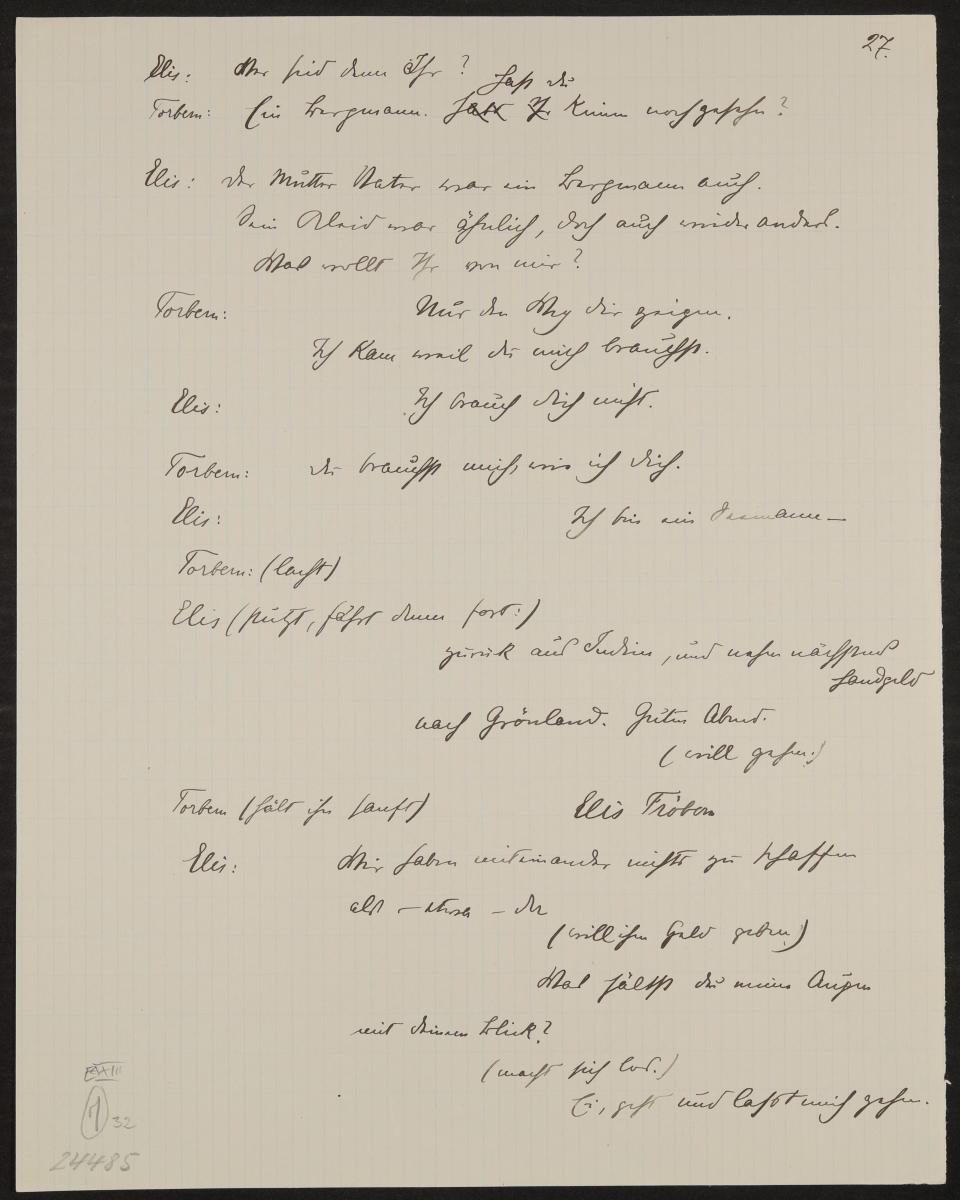 27.
Elis: Wer seid denn Ihr?
Hast du
Torbern: Ein Bergmann. Habt Ihr Keinen noch gesehn?
Elis: Der Mutter Vater war ein Bergmann auch.
Sein Kleid war ähnlich, doch auch wieder anders.
Was wollt Ihr von mir?
Torbern: Nur den Weg dir zeigen.
Ich kam weil du mich brauchst.
Elis: Ich brauch dich nicht.
Torbern: Du brauchst mich, wie ich dich.
Elis: Ich bin ein Seemann—
Torbern: (lacht)
Elis (stutzt, fährt dann fort:)
zurück aus Indien, und nehm nächstens
Handgeld
nach Grönland. Guten Abend.
(will gehen.)
Torbern (hält ihn sanft) Elis Fröbom
Elis: Wir haben miteinander nichts zu schaffen
als – etwa – der
(will ihm Geld geben)
Was hältst du meine Augen
mit deinem Blick?
(macht sich los.)
Ei, geht und lasst mich gehen.
1 32
24485